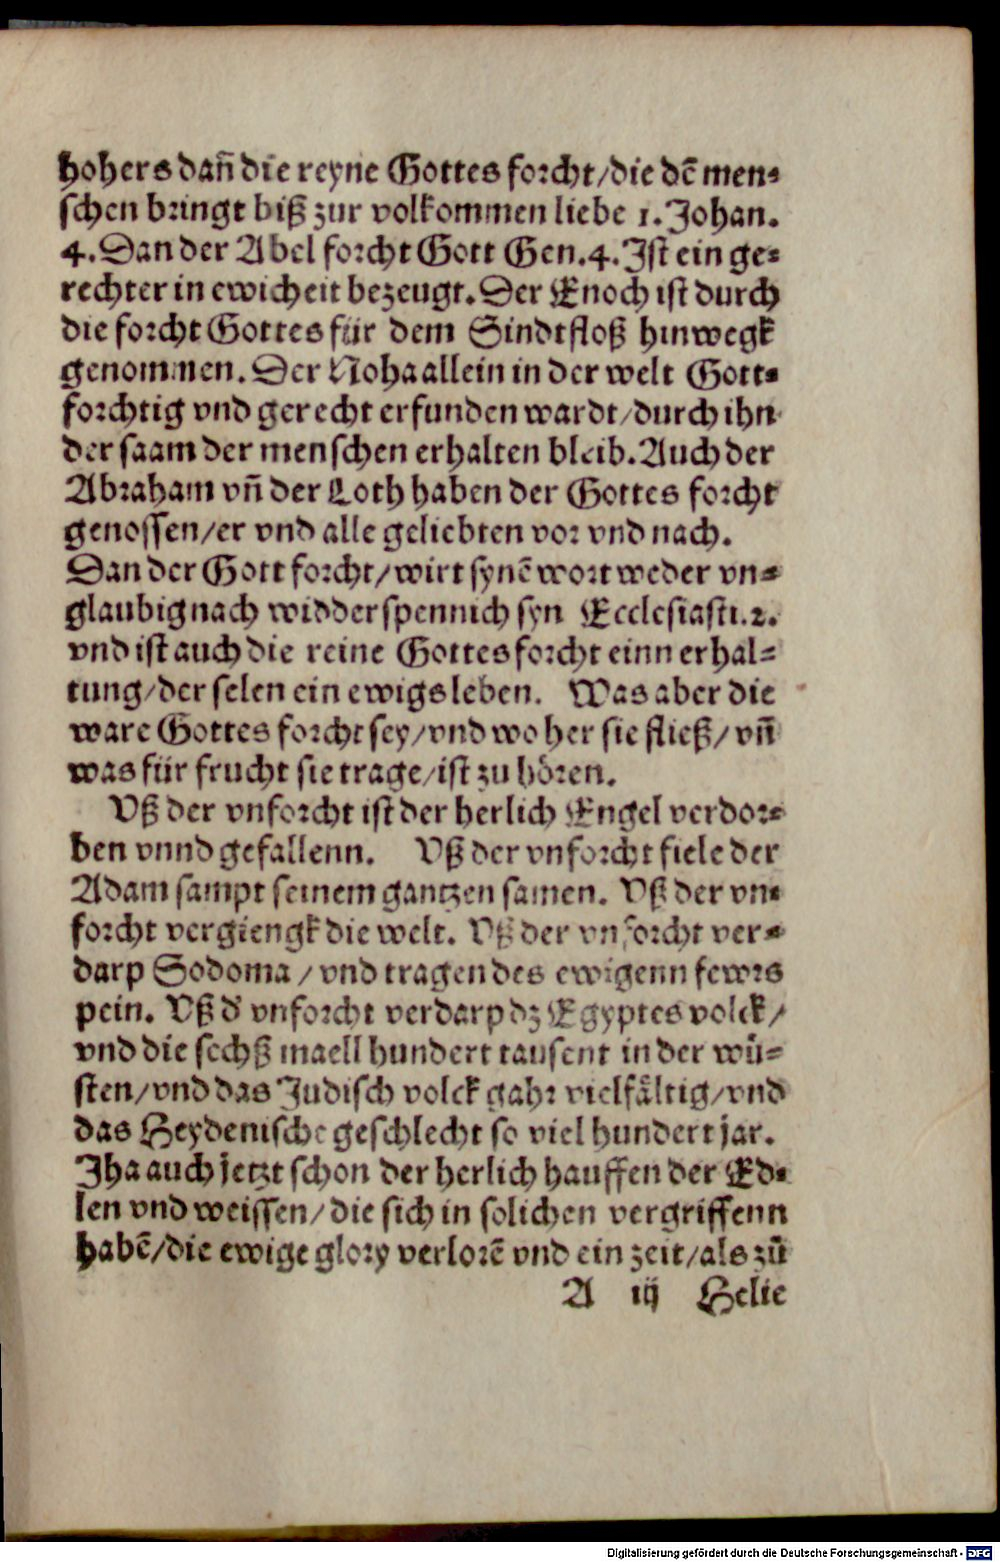 hohers dañ die reyne Gottes forcht/die dē men-
schen bringt biß zur volkommen liebe 1. Johan.
4. Dan der Abel forcht Gott Gen. 4. Ist ein ge-
rechter in ewicheit bezeugt. Der Enoch ist durch
die forcht Gottes für dem Sindtfloß hinwegk
genommen. Der Noha allein in der welt Gott-
forchtig vnd gerecht erfunden wardt/durch ihn
der saam der menschen erhalten bleib. Auch der
Abraham vñ der Loth haben der Gottes forcht
genossen/er vnd alle geliebten vor vnd nach.
Dan der Gott forcht/wirt synē wort weder vn-
glaubig nach widderspennich syn Ecclesiasti. 2.
vnd ist auch die reine Gottes forcht einn erhal-
tung/der selen ein ewigs leben. Was aber die
ware Gottes forcht sey/vnd wo her sie fließ/vñ
was für frucht sie trage/ist zu hören.
Vß der vnforcht ist der herlich Engel verdor-
ben vnnd gefallenn. Vß der vnforcht fiele der
Adam sampt seinem gantzen samen. Vß der vn-
forcht vergiengk die welt. Vß der vnforcht ver-
darp Sodoma/vnd tragen des ewigenn fewrs
pein. Vß d' vnforcht verdarp dz Egyptes volck/
vnd die sechß maell hundert tausent in der wü-
sten/vnd das Judisch volck gahr vielfältig/vnd
das Heydenische geschlecht so viel hundert jar.
Jha auch jetzt schon der herlich hauffen der Ed-
len vnd weissen/die sich in solichen vergriffenn
habē/die ewige glory verlorē vnd ein zeit/als zů
A iij Helie
Digitalisierung gefördert durch die Deutsche Forschungsgemeinschaft - DFG